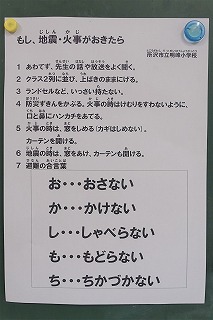 もし、地震・火事がおきたら
所沢市立明峰小学校
1 あわてず、先生の話や放送をよく聞く。
2 クラス2列に並び、上ばきのままにげる。
3 ランドセルなど、いっさい持たない。
4 防災ずきんをかぶる。火事の時はけむりをすわないように、
口と鼻にハンカチをあてる。
5 火事の時は、窓をしめる（カギはしめない）。
カーテンを開ける。
6 地震の時は、窓をあけ、カーテンも開ける。
7 避難の合言葉
お・・・おさない
か・・・かけない
し・・・しゃべらない
も・・・もどらない
ち・・・ちかづかない